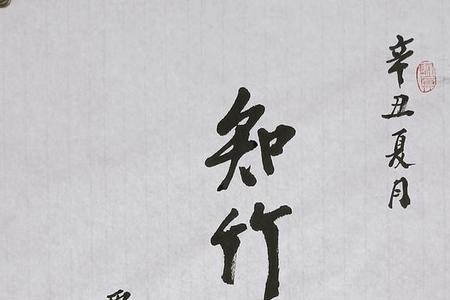 辛丑夏月
知竹